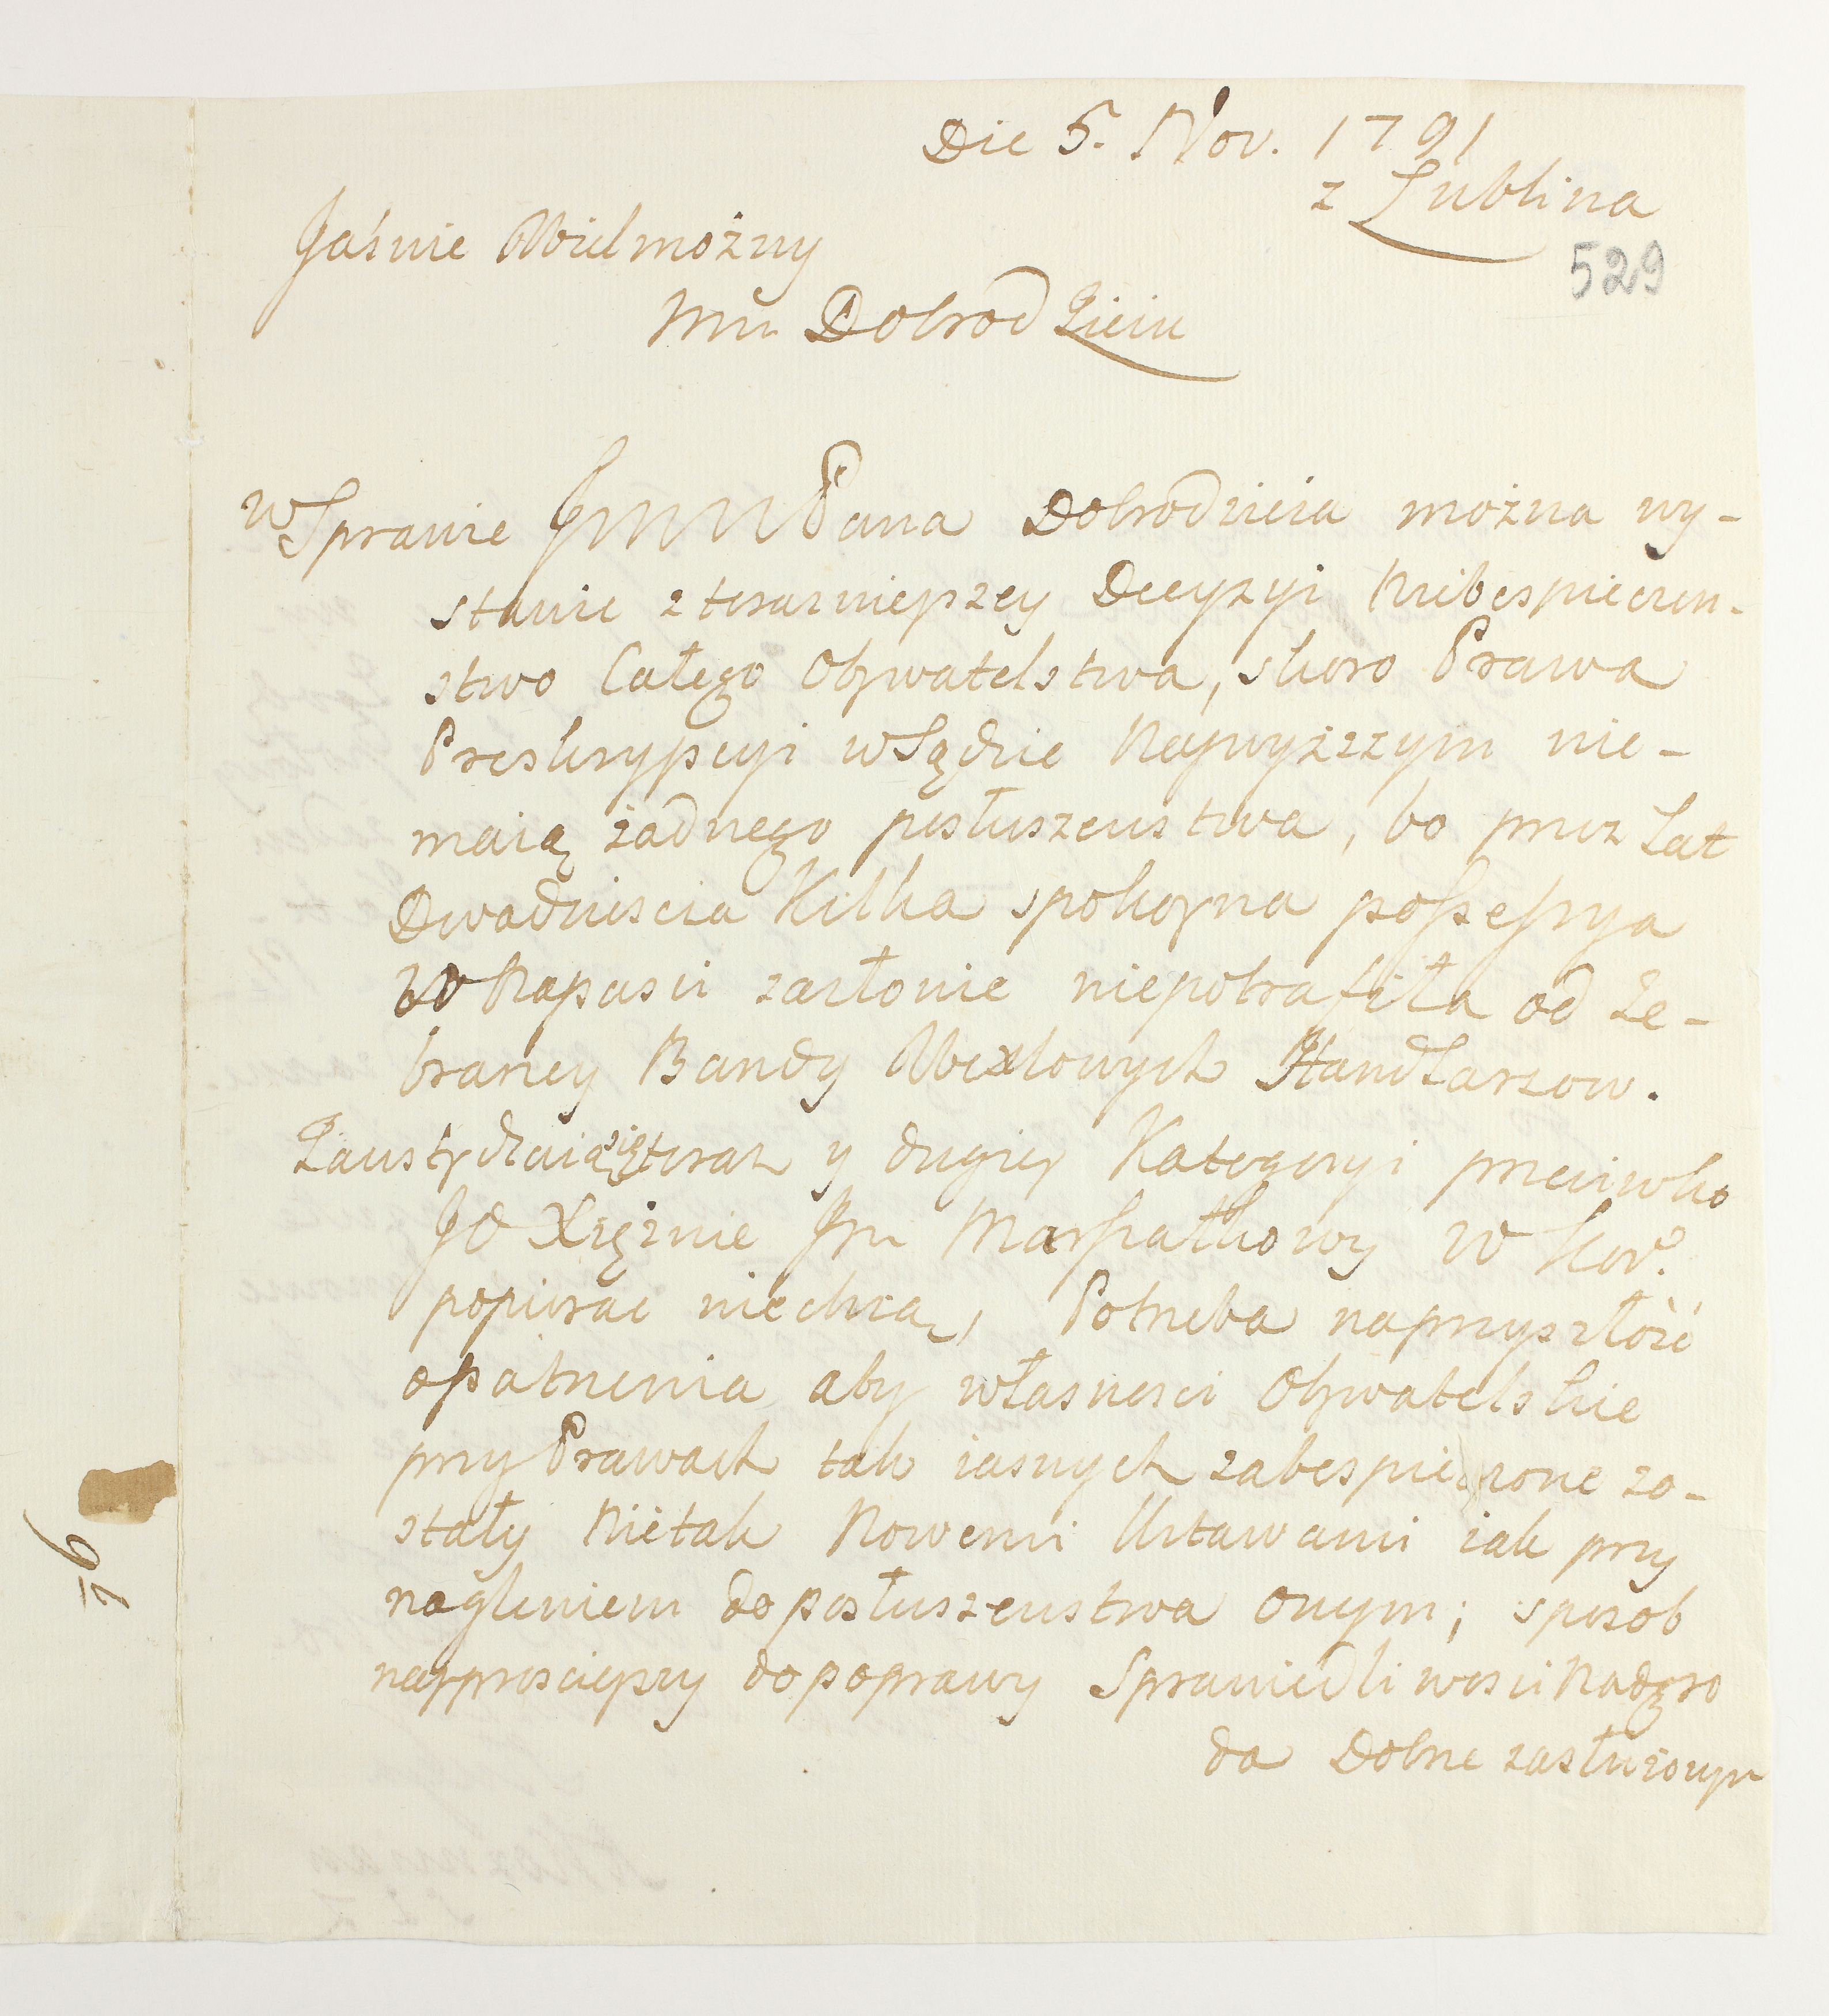 Die 5. Nov. 1791
z Lublina
529
Jaśnie Wielmożny
Mci Dobrodzieiu
w Sprawie JWWPana Dobrodzieia można wy-
stawić z terazniejszey Decyzyi Niebespieczen-
stwo Całego Obywatelstwa, skoro Prawa
Preskrypcyi w Sądzie Naywyższym nie-
maią żadnego posłuszenstwa, bo przez Lat
Dwadziescia Kilka spokoyna possessya
od Napasci zasłonić niepotrafiła od Ze-
braney Bandy Wexlowych Handlarzow.
Zaustydzaią się teraz y drugiey Kategoryi przeciwko
JO Xiężnie Jm Marszałkowy W Kor.
popierać niechcą, Potrzeba naprzyszłość
opatrzenia aby własnosci Obywatelskie
przy Prawach tak iasnych zabespieczone zo-
stały Nietak Nowemi Ustawami iak przy
nagleniem do posłuszenstwa onym; sposob
nayprosciejszy do poprawy Sprawiedliwosci Nadgro
da Dobrze zasłużonym
96